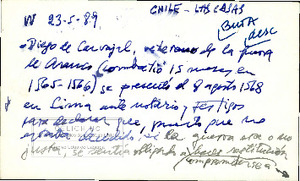 CHILE - LAS CASAS
W 23-5-89
BULA
desc
Diego de Carvajal, veterano de la guerra
de Arauco (combatió 15 meses, en
1565-1566) se presentó el 8 agosto 1568
en Lima ante notario y testigos
para declarar que, puesto que no
estaba decidido, si la guerra era o no
justa, se sentía obligado a hacer restitución
(comprometerse a